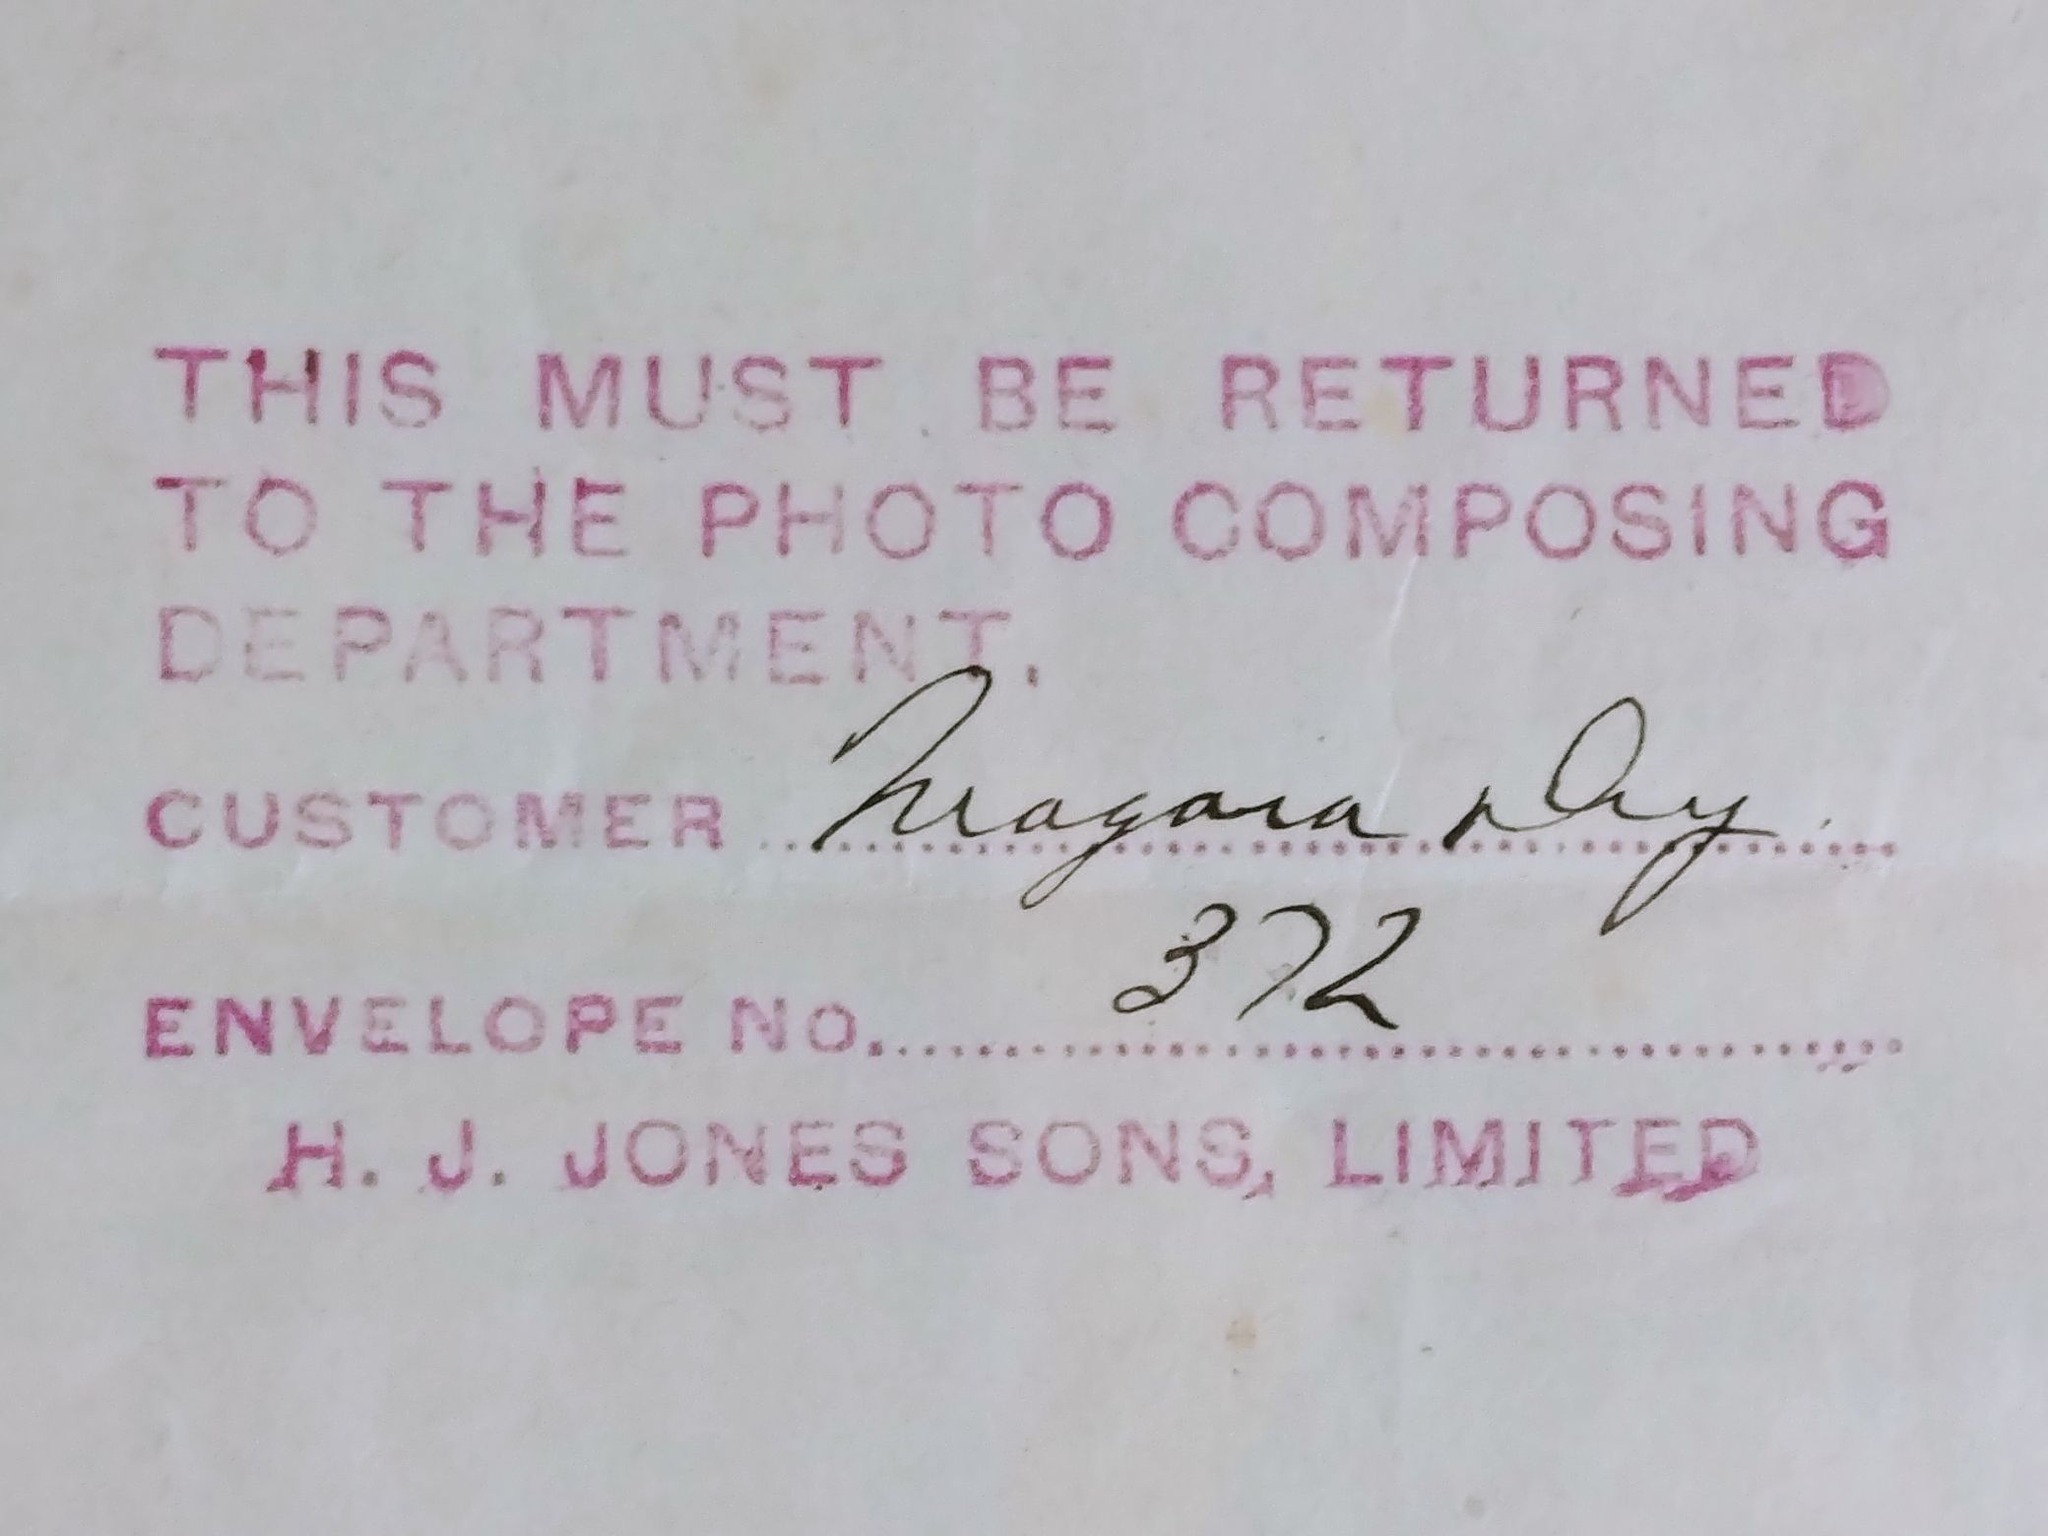 THIS MUST BE RETURNED
TO THE PHOTO COMPOSING
DEPARTMENT.
CUSTOMER Niagara Dry.
ENVELOPE NO. 372
H. J. JONES SONS, LIMITED